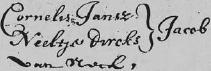 Cornelis Jansz
Neeltje Dircks } Jacob
van Neck,